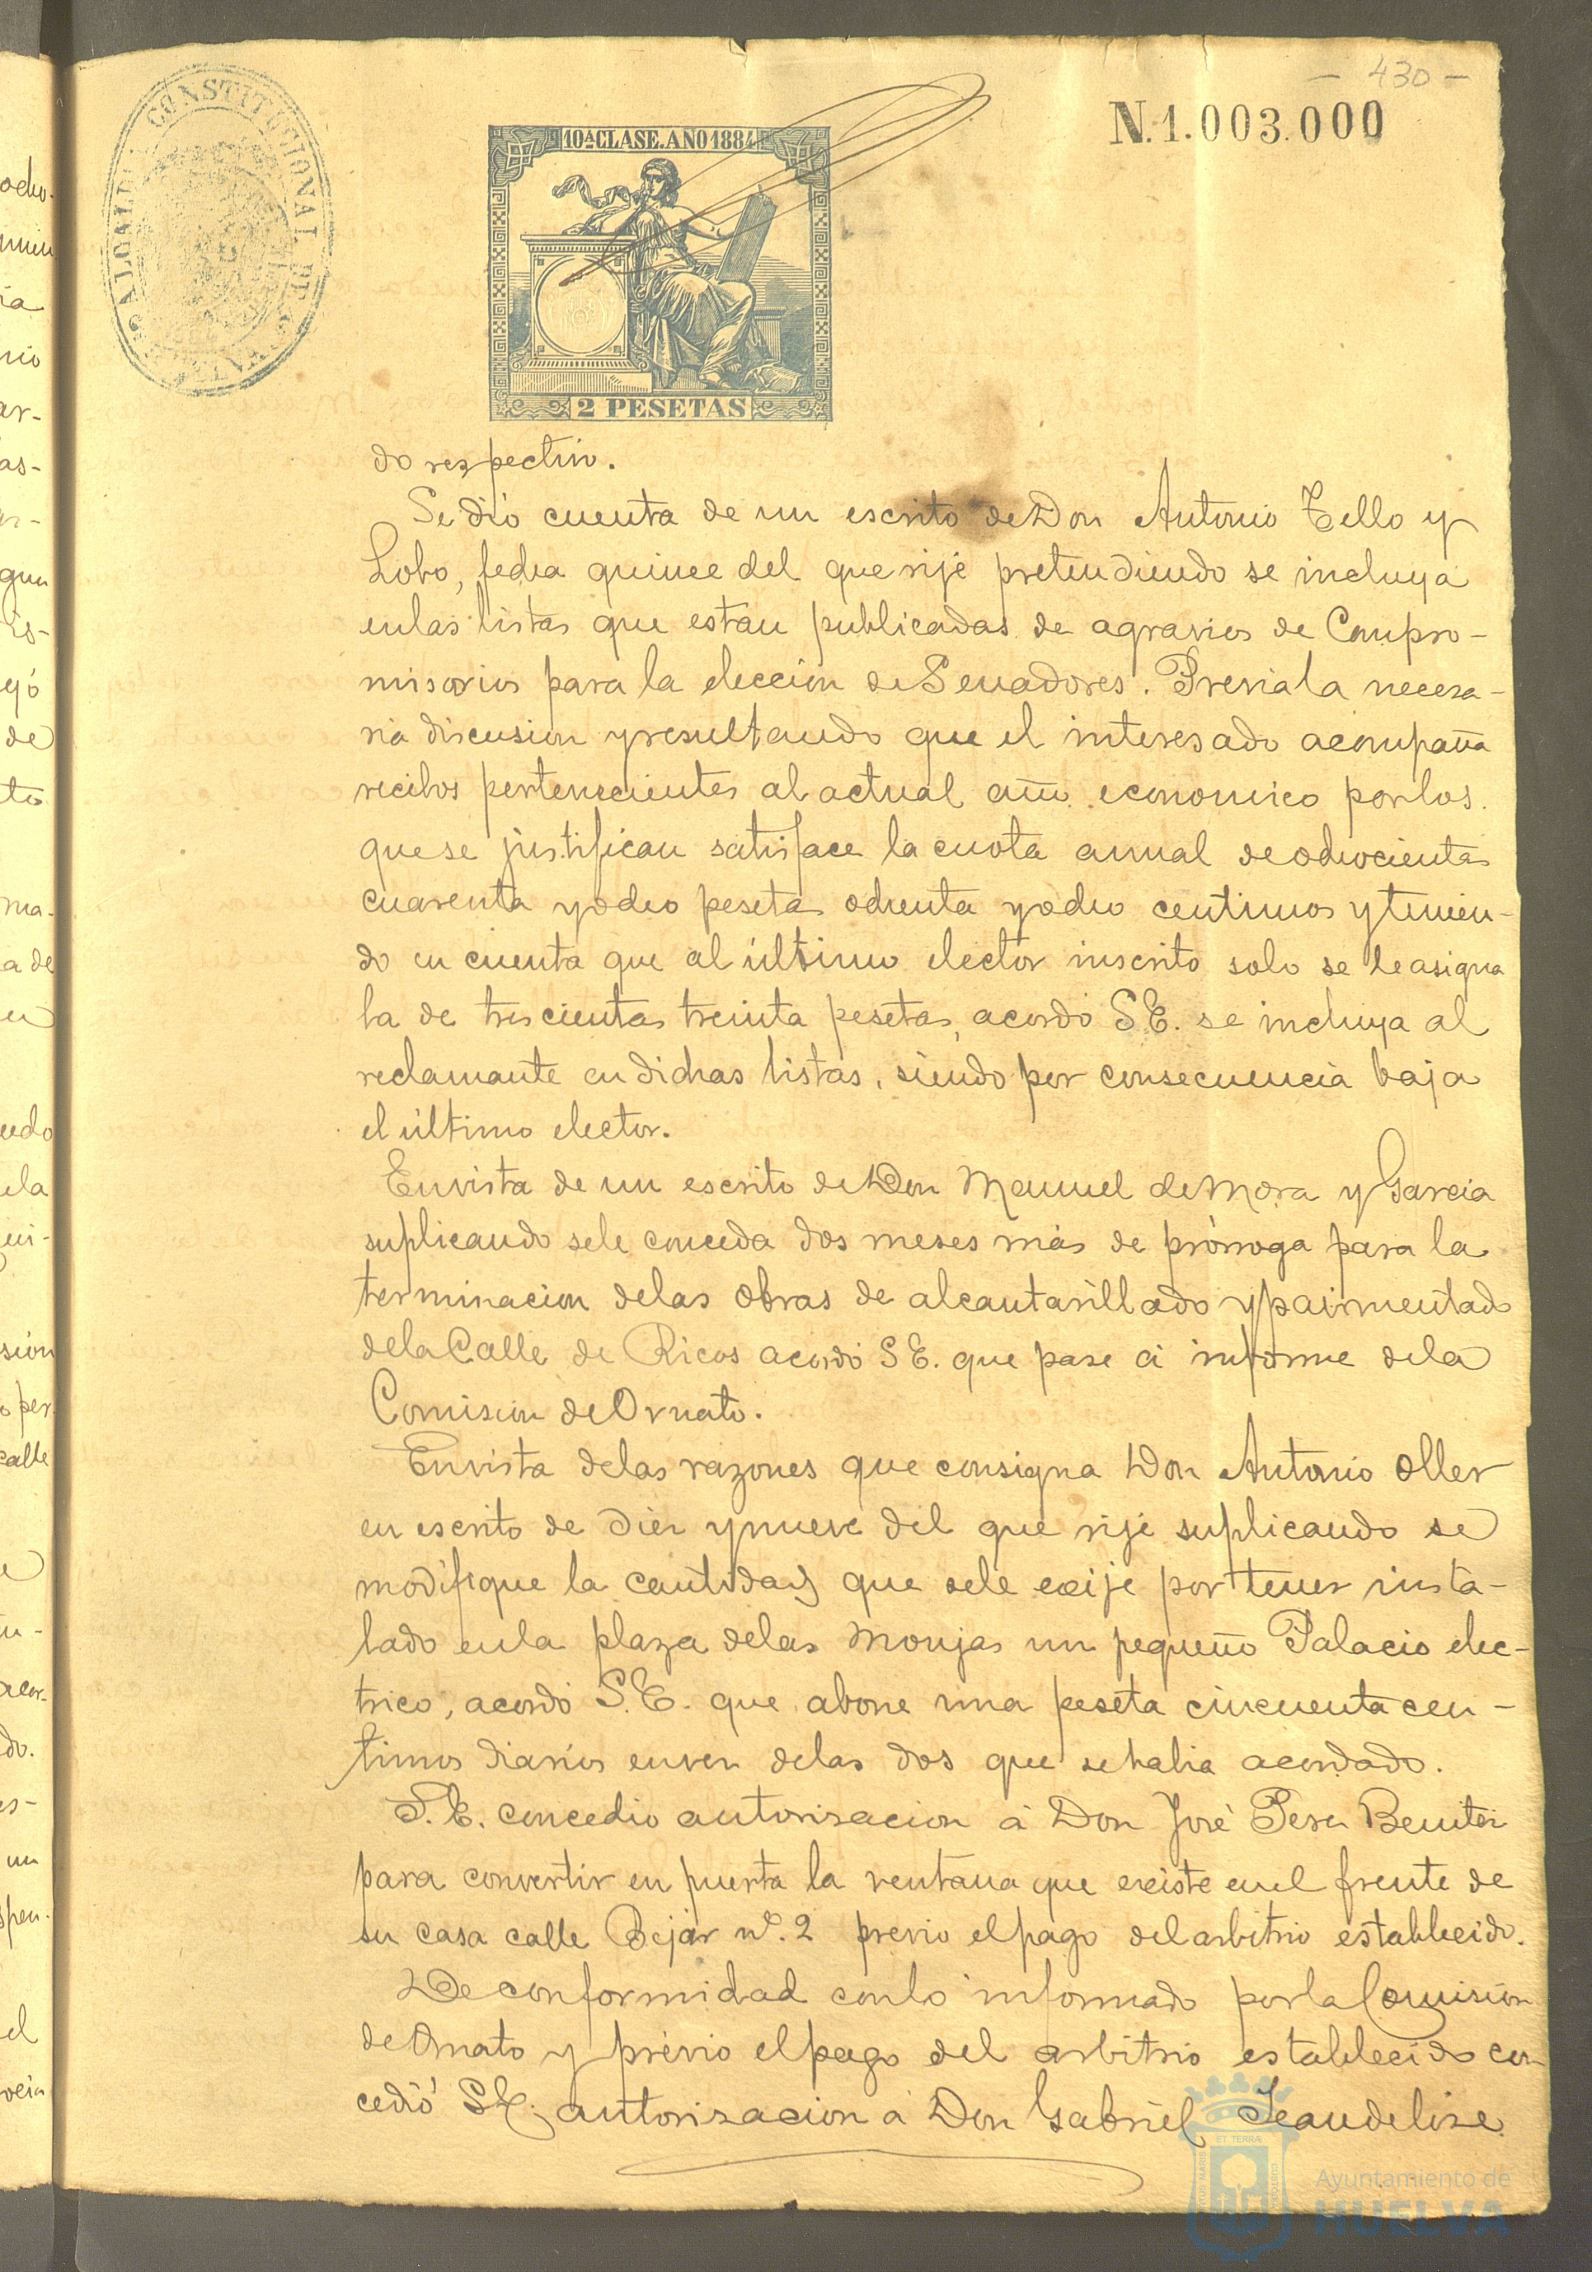 - 430 -
N.1.003.000
ALCALDIA CONSTITUCIONAL DE
10ª CLASE. AÑO 1884
2 PESETAS
do respectivo.
Se dió cuenta de un escrito de Don Antonio Tello y
Lobo, fecha quince del que rije pretendiendo se incluya
en las listas que estan publicadas de agravios de Compro-
misorios para la eleccion de Senadores. Previa la necesa-
ria discusion y resultando que el interesado acompaña
recibos pertenecientes al actual año economico por los
que se justifican satisface la cuota anual de ochocientas
cuarenta y ocho pesetas ochenta y ocho centimos y tenien-
do en cuenta que al último elector inscrito solo se le asigna
la de trescientas treinta pesetas, acordó S.E. se incluya al
reclamante en dichas listas, siendo por consecuencia baja
el último elector.
En vista de un escrito de Don Manuel de Mora y Garcia
suplicando se le conceda dos meses más de prórroga para la
terminacion de las obras de alcantarillado y pavimentado
de la Calle de Ricos acordó S E. que pase á informe de la
Comision de Ornato.
En vista de las razones que consigna Don Antonio Oller
en escrito de diez y nueve del que rije suplicando se
modifique la cantidad que se le exije por tener insta-
lado en la plaza de las Monjas un pequeño Palacio elec-
trico, acordó S.E. que abone una peseta cincuenta cen-
timos diarios en vez de las dos que se habia acordado.
S.E. concedio autorizacion á Don José Perez Benitez
para convertir en puerta la ventana que existe en el frente de
su casa calle Bejar nº. 2 previo el pago del arbitrio establecido.
De conformidad con lo informado por la Comision
de Ornato y prévio el pago del arbitrio establecido con
cedió S.E. autorizacion á Don Gabriel
Ayuntamiento de
HUELVA